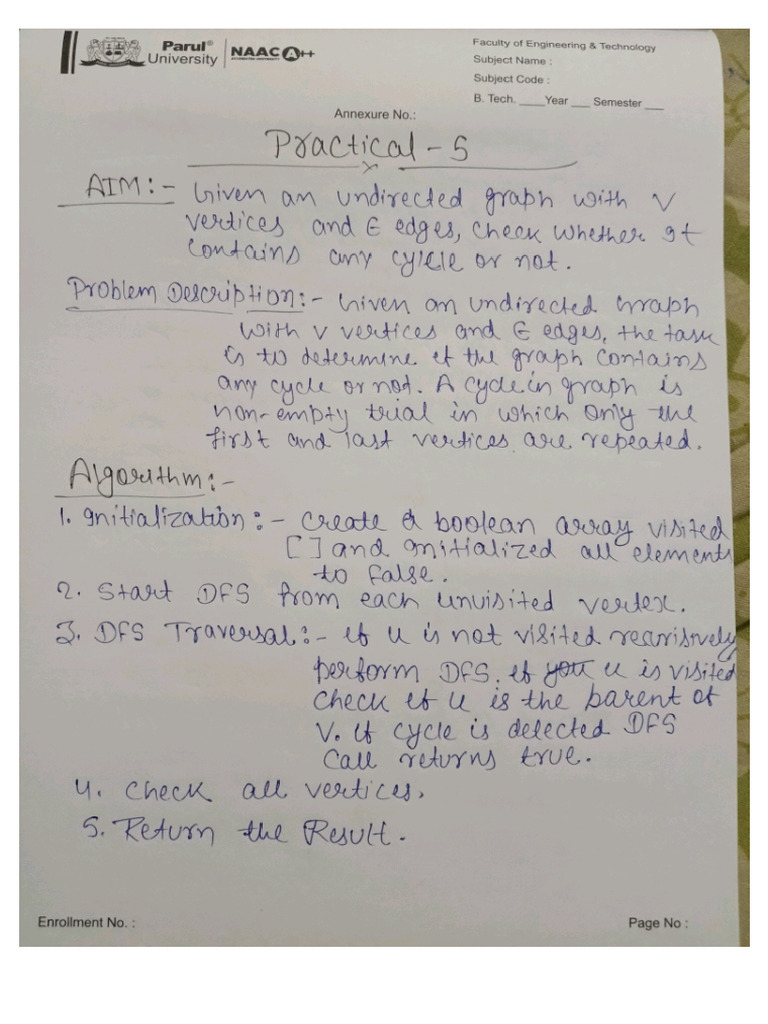 Parul®
University
NAAC A++
ACCREDITED UNIVERSITY
Faculty of Engineering & Technology
Subject Name :
Subject Code :
B. Tech. ____Year ___ Semester ___
Annexure No.:
Practical - 5
AIM:- Given an undirected graph with V
vertices and E edges, check whether It
contains any cycle or not.
Problem Description:- Given an undirected Graph
with V vertices and E edges, the task
is to determine if the graph contains
any cycle or not. A cycle in graph is
non-empty trial in which only the
first and last vertices are repeated.
Algorithm:-
1. Initialization:- create a boolean array visited
[ ] and initialized all elements
to false.
2. Start DFS from each unvisited vertex.
3. DFS Traversal:- if u is not visited recurisively
perform DFS. if you u is visited
check if u is the parent of
V. if cycle is detected DFS
call returns true.
4. check all vertices.
5. Return the Result.
Enrollment No. :
Page No :